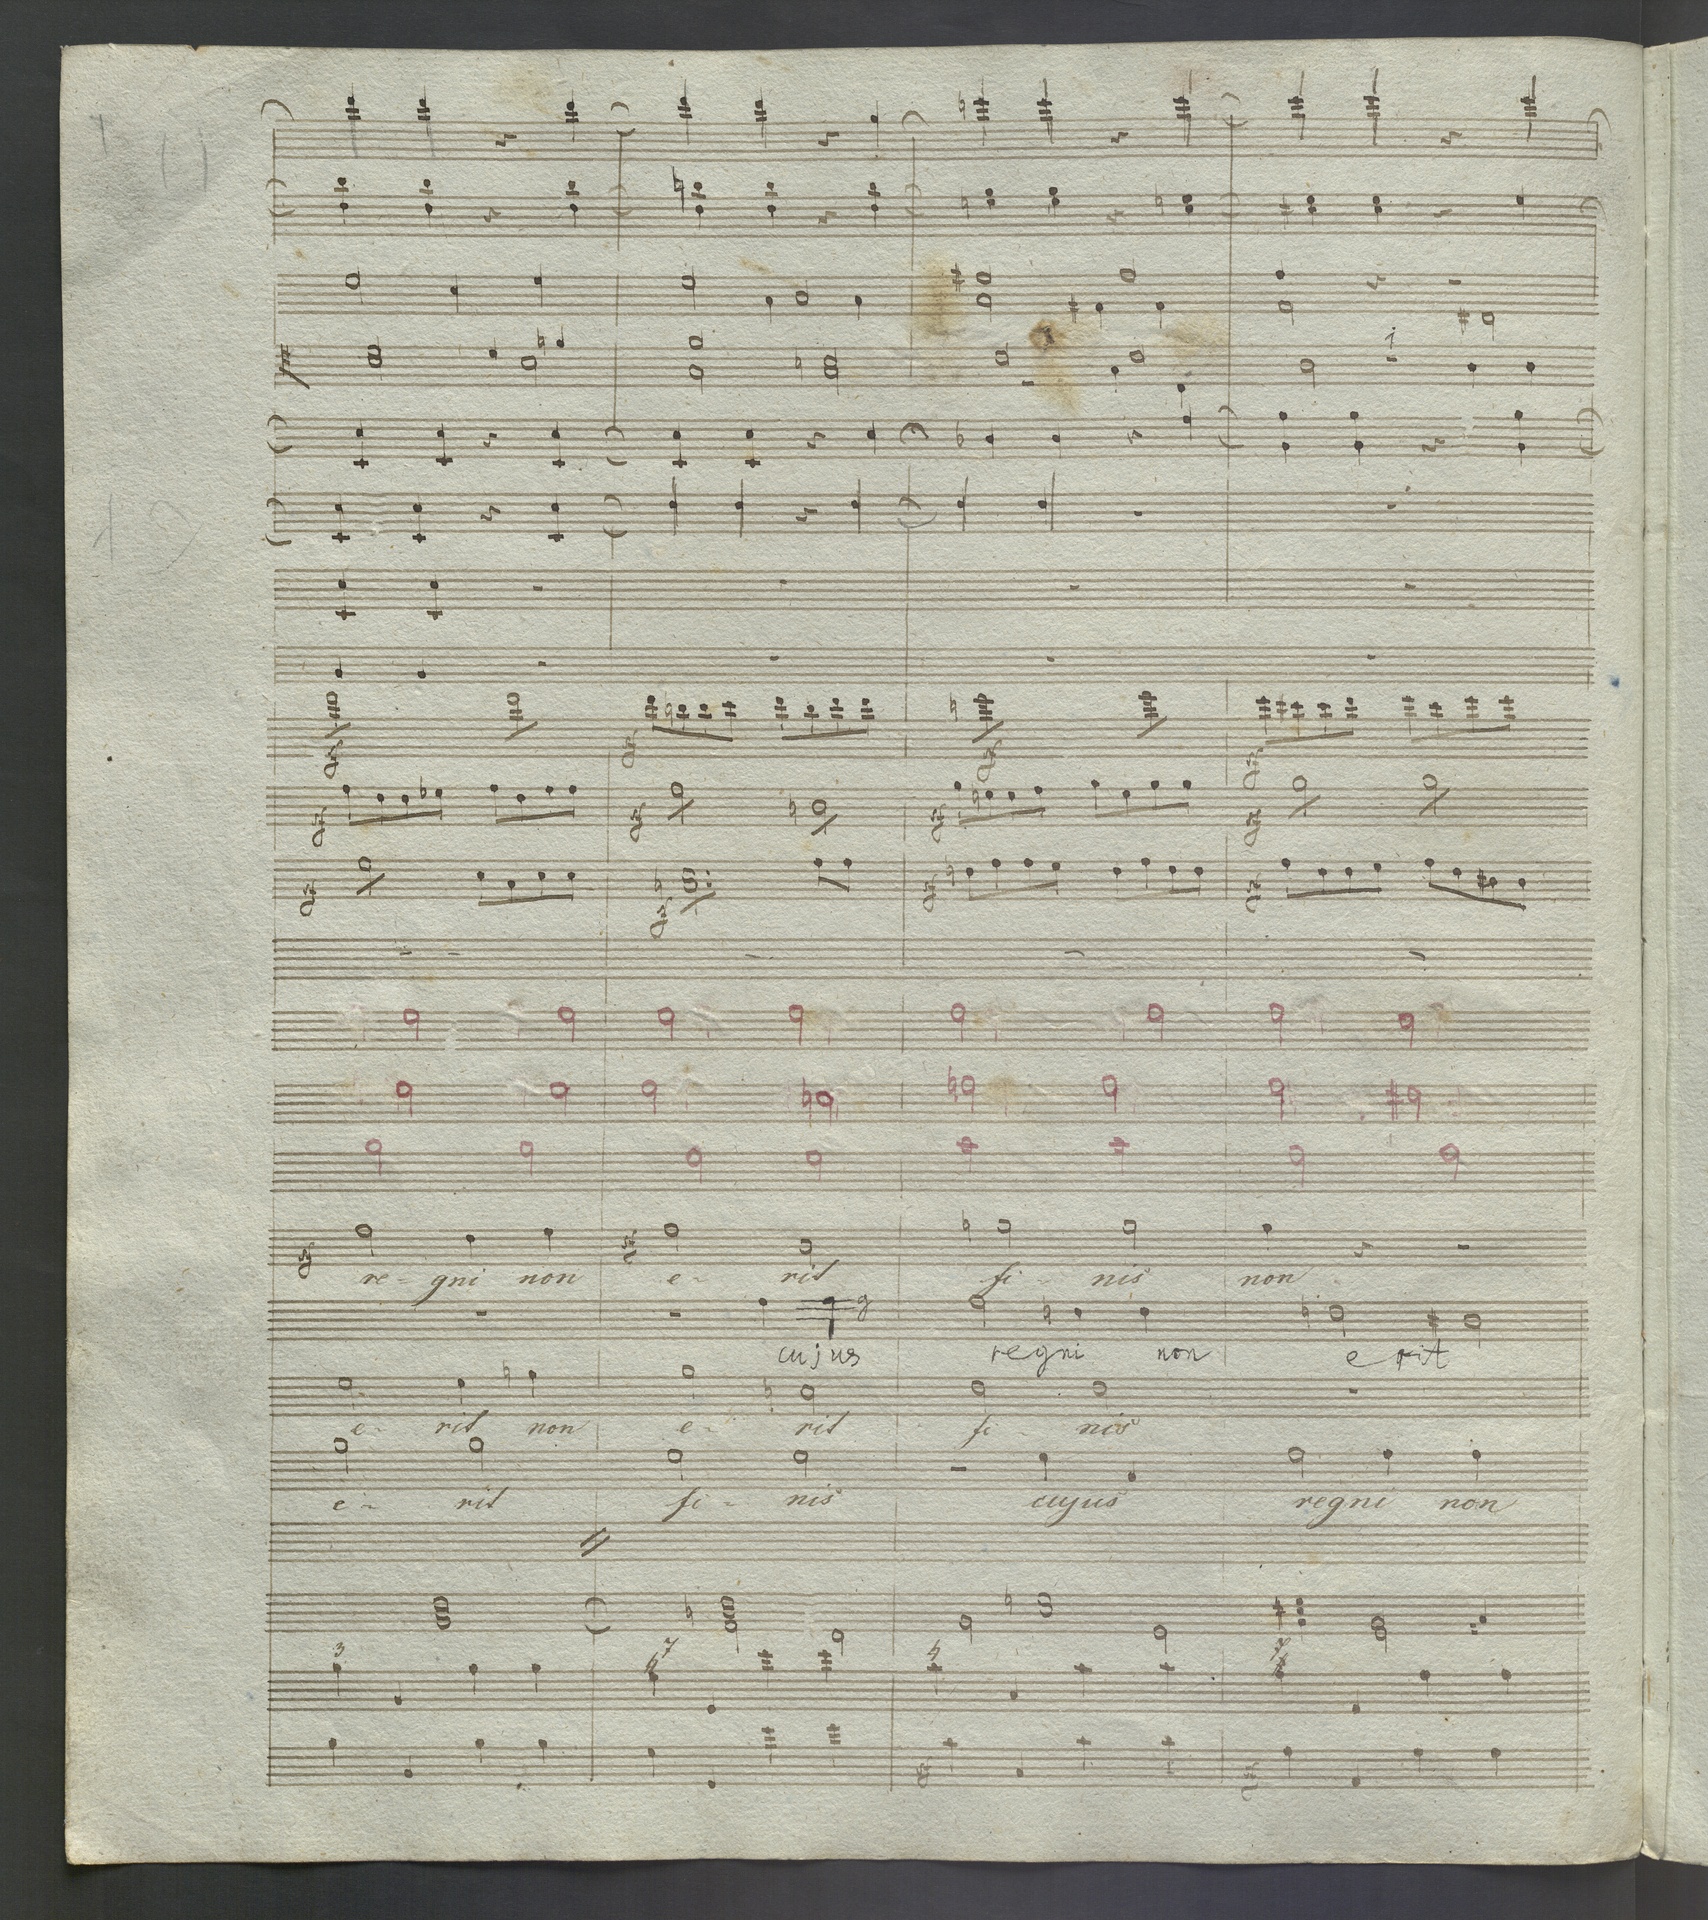 re- gni non e- rit fi- nis non
cujus regni non erit
e- rit non e- rit fi- nis
e- rit fi- nis cujus regni non